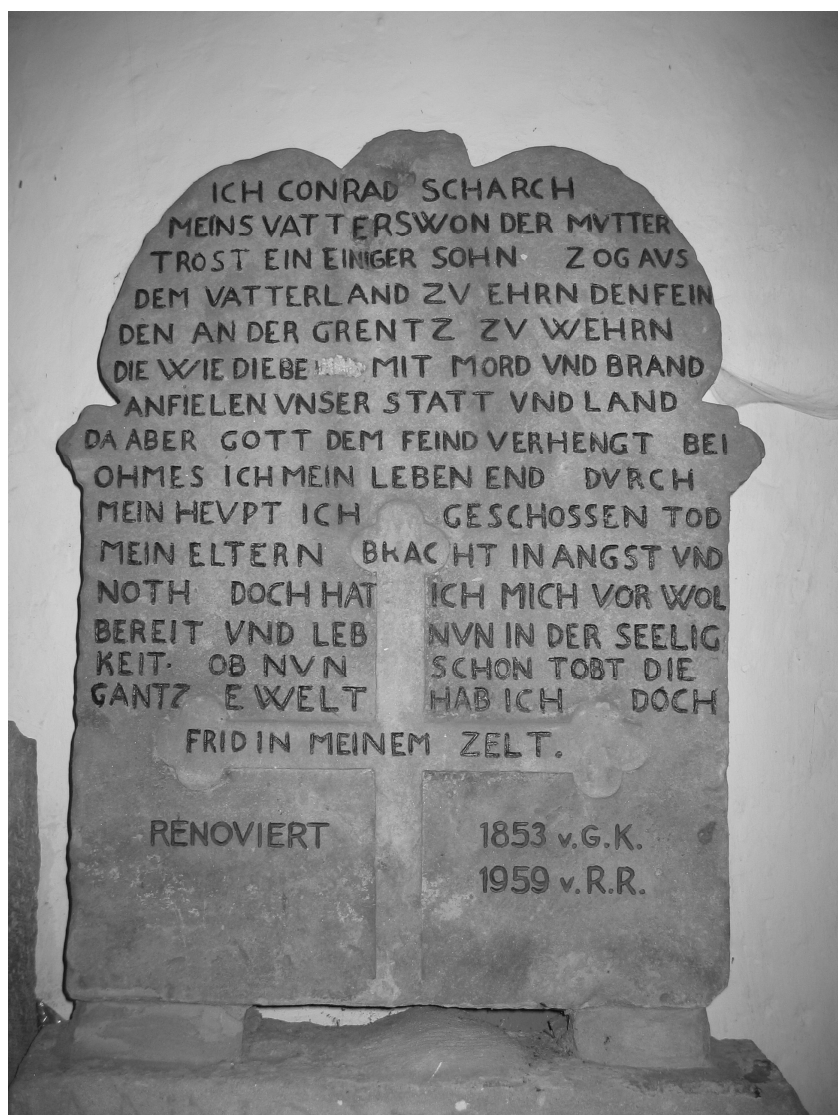 ICH CONRAD SCHARCH
MEINS VATTERSWON DER MVTTER
TROST EIN EINIGER SOHN. ZOG AVS
DEM VATTERLAND ZV EHRN DENFEIN
DEN AN DER GRENTZ ZV WEHRN
DIE WIE DIEBE MIT MORD VND BRAND
ANFIELEN VNSER STATT VND LAND
DA ABER GOTT DEM FEIND VERHENGT BEI
OHMES ICH MEIN LEBEN END DVRCH
MEIN HEVPT ICH GESCHOSSEN TOD
MEIN ELTERN BRACHT IN ANGST VND
NOTH DOCH HAT ICH MICH VOR WOL
BEREIT VND LEB NVN IN DER SEELIG
KEIT. OB NVN SCHON TOBT DIE
GANTZE WELT HAB ICH DOCH
FRID IN MEINEM ZELT.
RENOVIERT 1853 v.G.K.
1959 v.R.R.